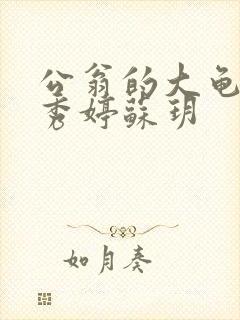 公翁的大龟
秀婷蘇玥
如月奏